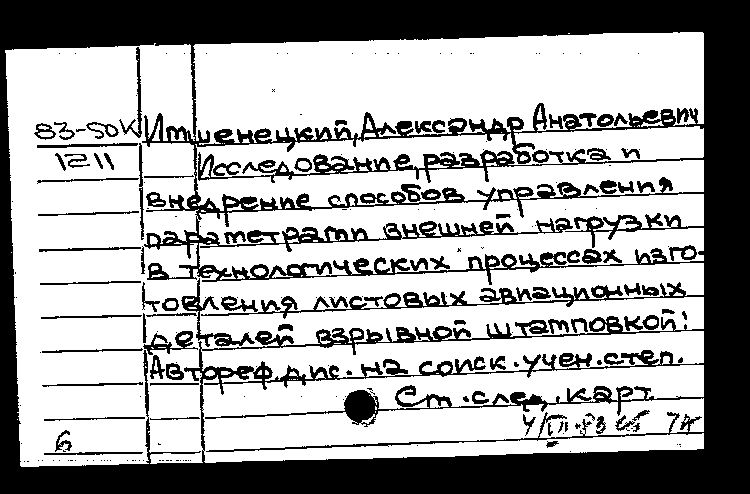 83-50к Итшенецкий, Александр Анатольевич.
1211 Исследование, разработка и
внедрение способов управления
параметрами внешней нагрузки
в технологических процессах изго-
товления листовых авиационных
деталей взрывной штамповкой:
Автореф. дис. на соиск. учен. степ.
См. след. карт.
6